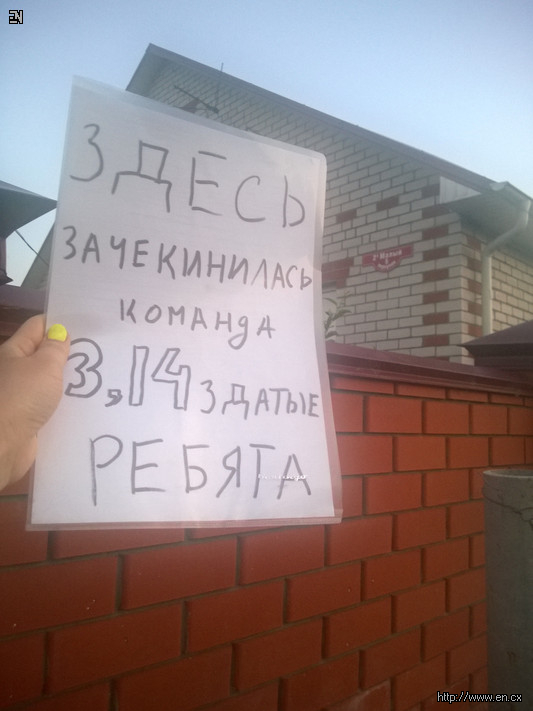 EN
ЗДЕСЬ
ЗАЧЕКИНИЛАСЬ
КОМАНДА
3,14ЗДАТЫЕ
РЕБЯТА
http://www.en.cx